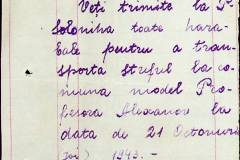 Veți trimite la S-
Solonina toate hara-
balele pentru a tran-
sporta struful la co-
muna model Pro-
fesora Alexanov la
data de 21 Octomvrie
Joi) 1943. –